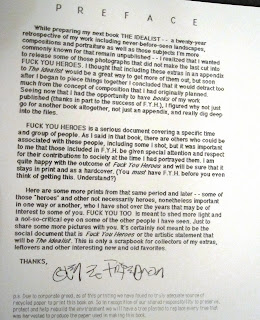 P R E F A C E
While preparing my next book THE IDEALIST -- a twenty-year
retrospective of my work including never-before-seen landscapes,
compositions and portraiture as well as those subjects I'm more
commonly known for that remain unpublished -- I realized that I wanted
to release some of those photographs that did not make the last cut into
FUCK YOU HEROES. I thought that including these extras in an appendix
to The Idealist would be a great way to get more of them out, but soon
after I began to piece things together I concluded that it would detract too
much from the composition that I had originally planned.
Seeing now that I had the opportunity to have books of my work
published (thanks in part to the success of F.Y.H.), I figured why not just
go for another book altogether, not just an appendix, and really dig deep
into the files.
FUCK YOU HEROES is a serious document covering a specific time
and group of people. As I said in that book, there are others who could be
associated with these people, including some I shot, but it was important
to me that those included in F.Y.H. be given special attention and respect
for their contributions to society at the time I had portrayed them. I am
quite happy with the outcome of Fuck You Heroes and will be sure that it
stays in print and as a hardcover. (You must have F.Y.H. before you even
think of getting this. Understand?)
Here are some more prints from that same period and later -- some of
those "heroes" and other not necessarily heroes, nonetheless important
in one way or another, who I have shot over the years that may be of
interest to some of you. FUCK YOU TOO is meant to shed more light and
a not-so-critical eye on some of the other people I have seen. Just to
share some more pictures with you. It's certainly not meant to be the
social document that is Fuck You Heroes or the artistic statement that
will be The Idealist. This is only a scrapbook for collectors of my extras,
leftovers and other interesting new and old favorites.
THANKS,